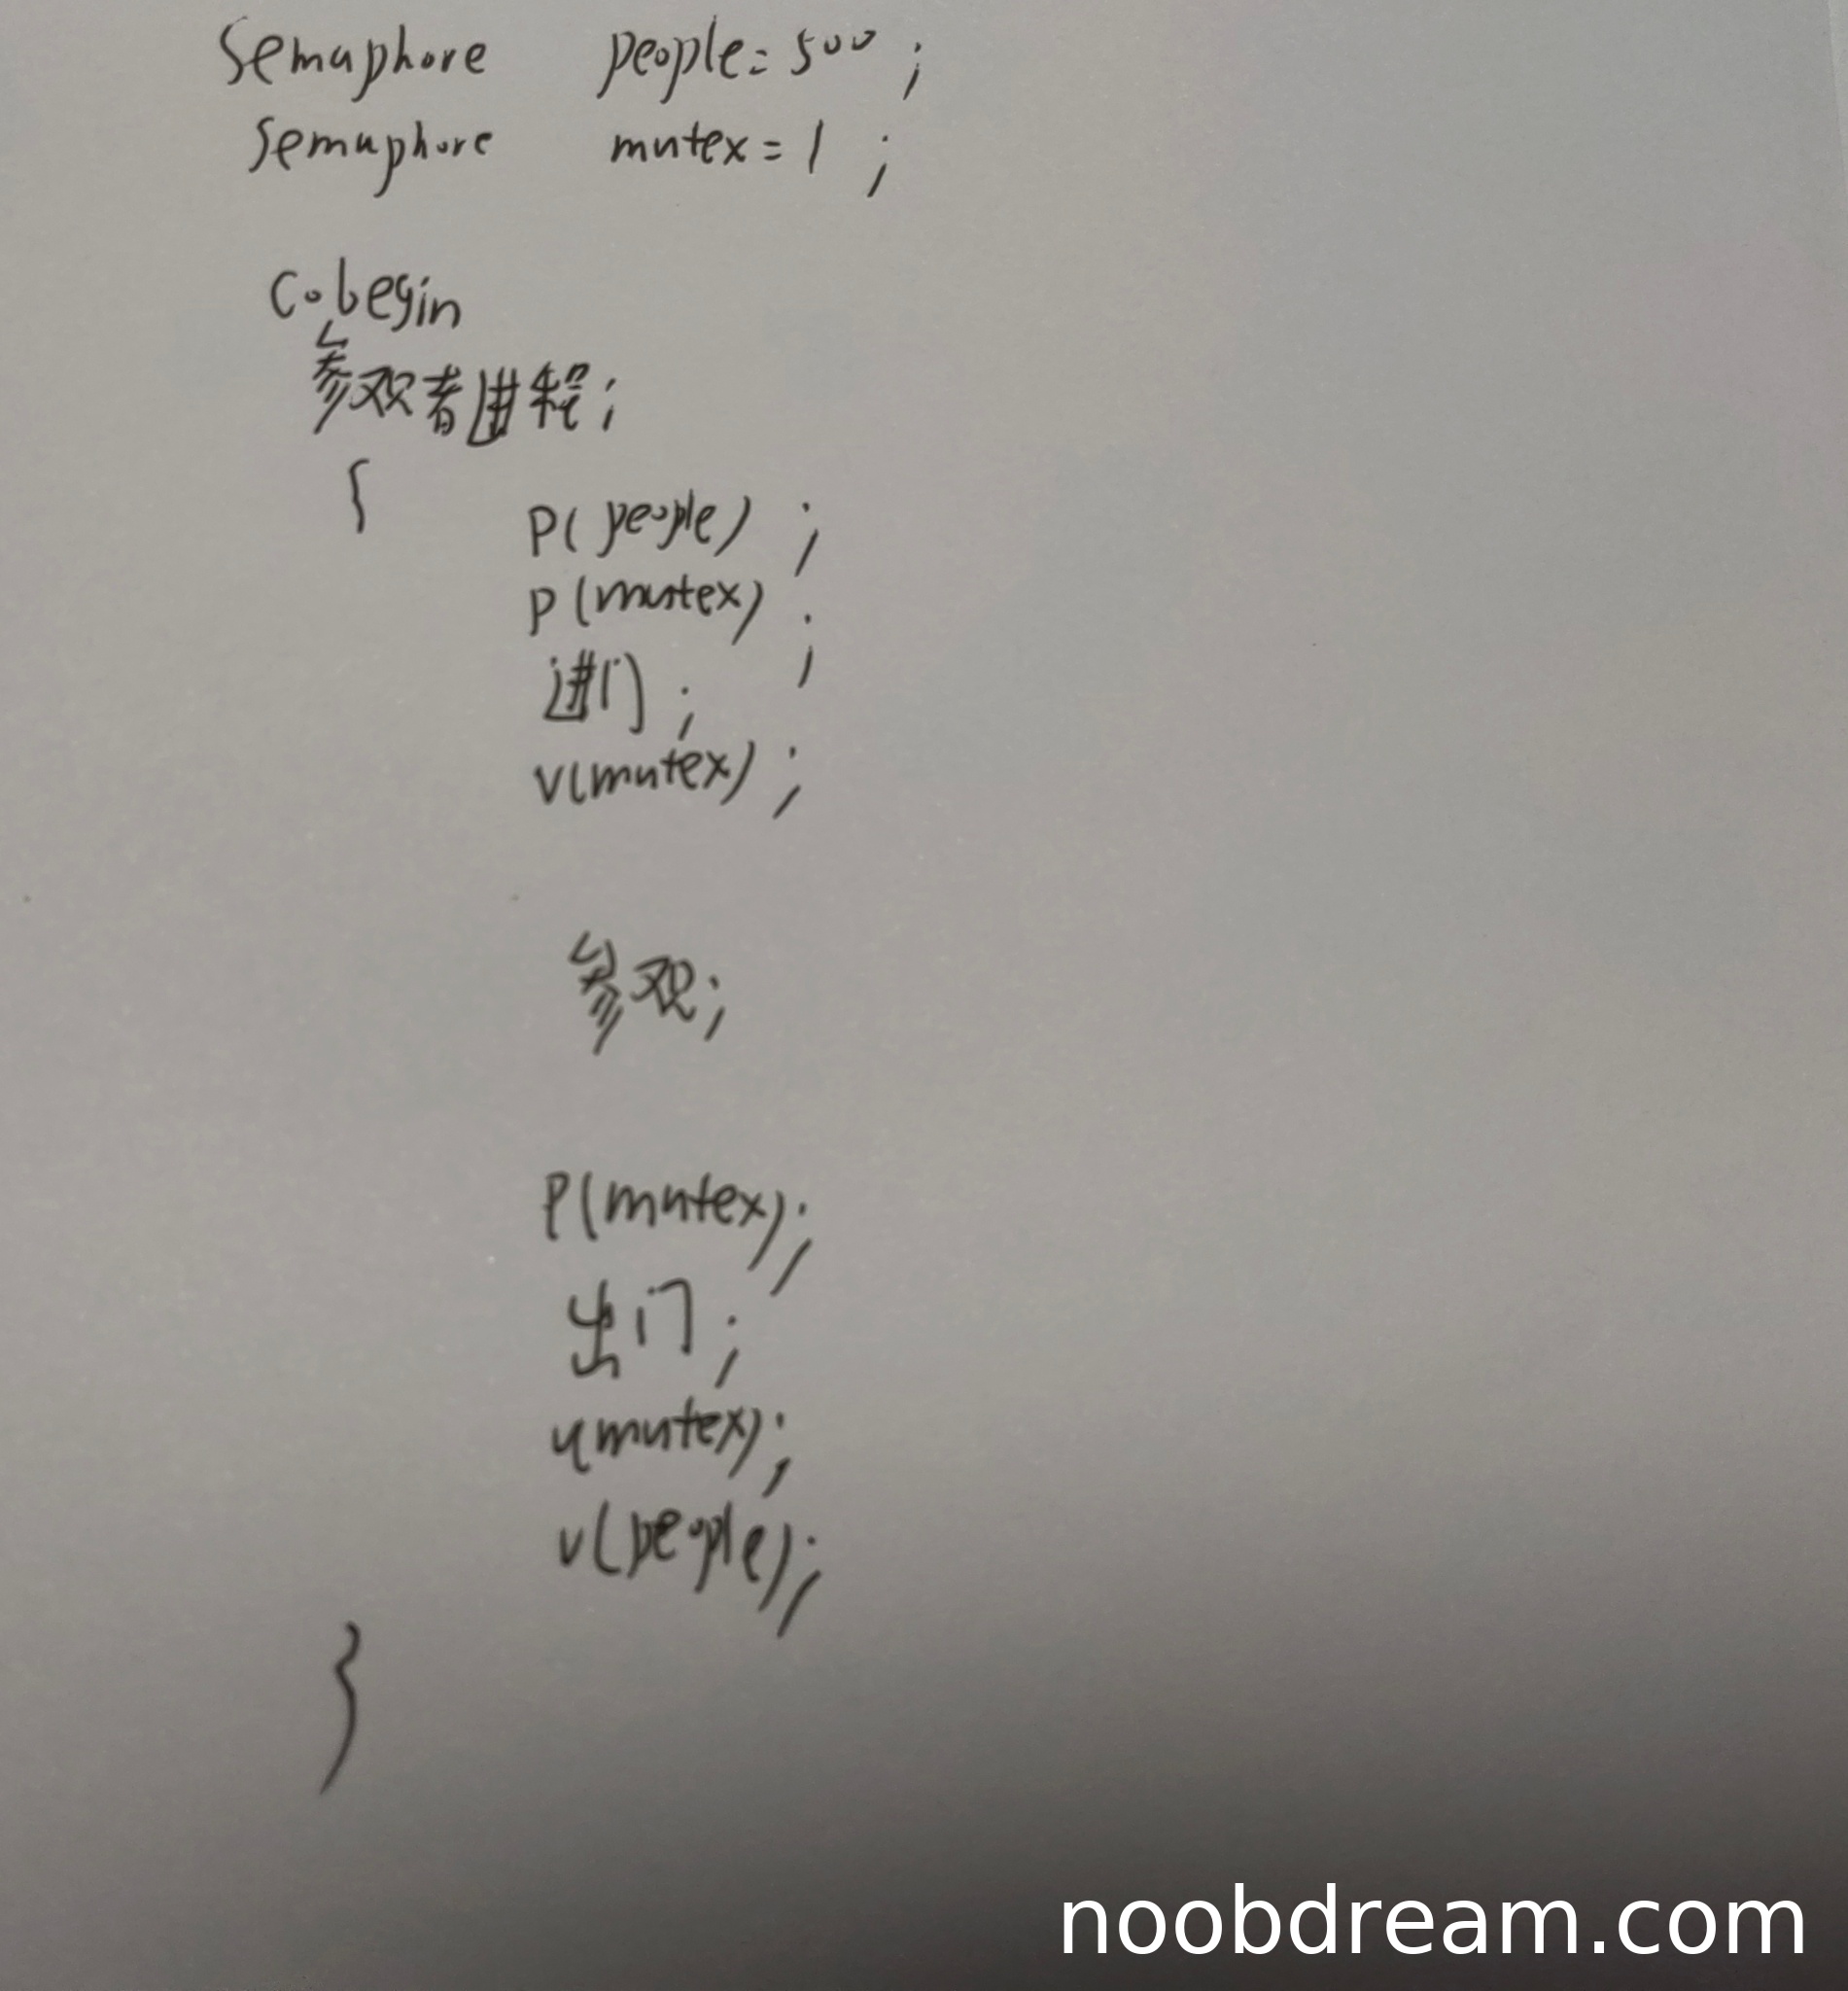 Semaphore people=500;
Semaphore mutex=1;
Cobegin
参观者进程;
{
P(people);
P(mutex);
进门;
V(mutex);
参观;
P(mutex);
出门;
V(mutex);
V(people);
}
noobdream.com